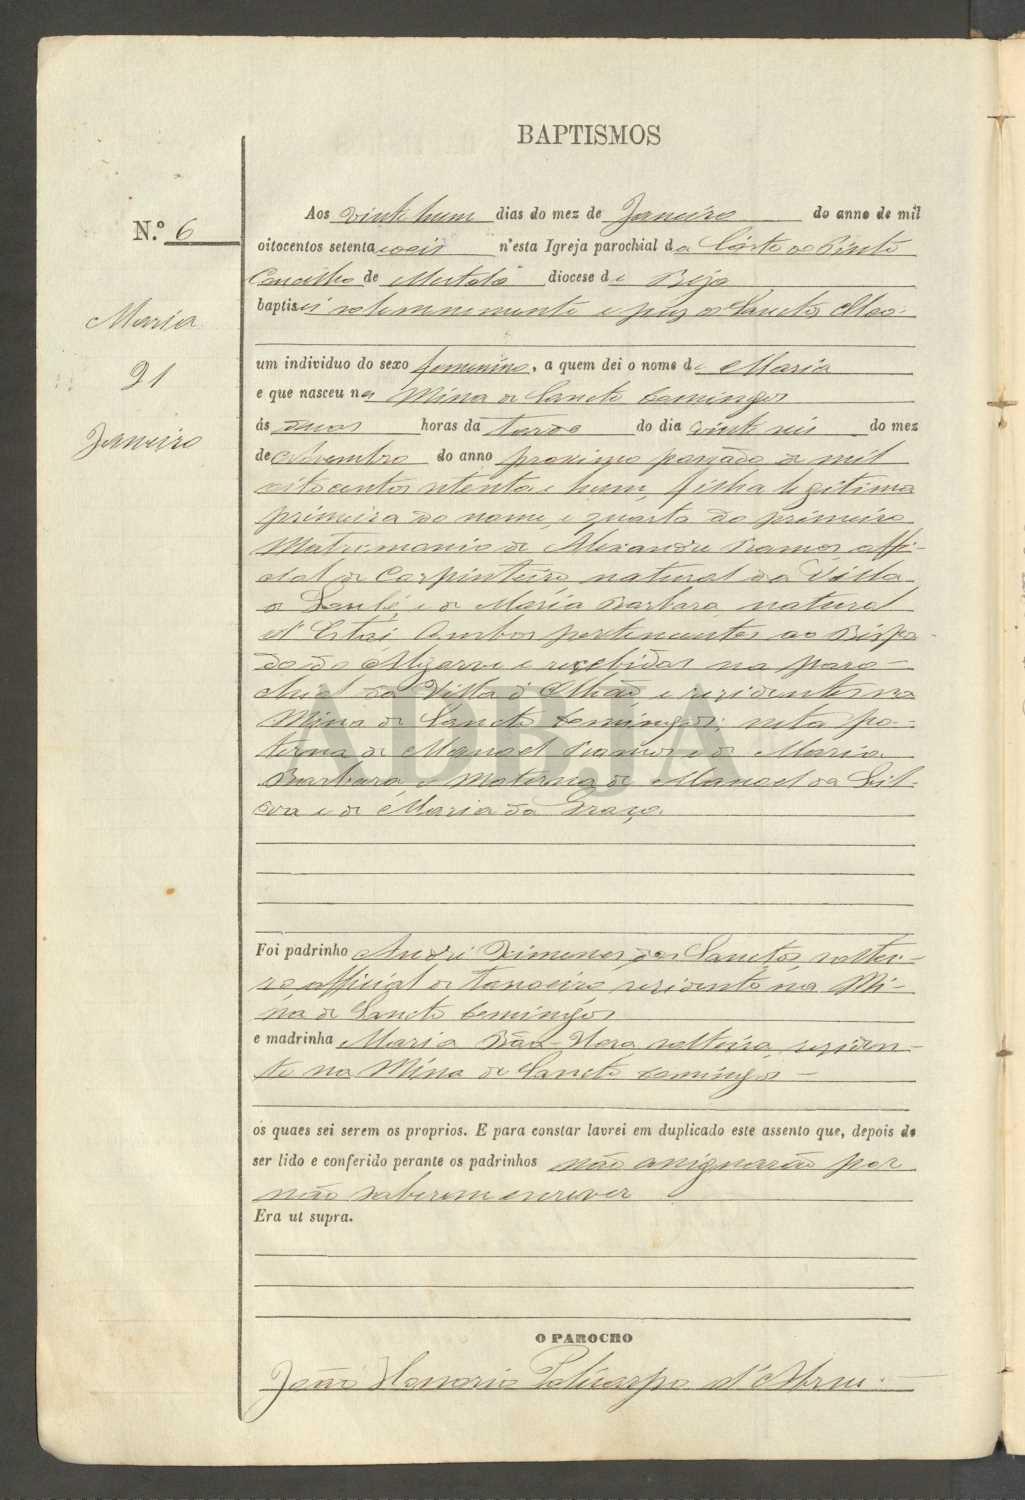 BAPTISMOS
N.º 6
Maria
21
Janeiro
Aos vinte hum dias do mez de Janeiro do anno de mil
oitocentos setenta e n'esta Igreja parochial da Côrte do Pinto
Concelho de Mertola diocese de Beja
baptisei solemnemente e puz os Sanctos Oleos
um individuo do sexo femenino, a quem dei o nome de Maria
e que nasceu na Mina de Sancto Domingos
ás duas horas da tarde do dia vinte seis do mez
de Novembro do anno proximo passado de mil
oitocentos e hum, filha legitima
primeira do nome, e quarta do primeiro
Matrimonio de Alexandre Ramos offi-
cial de Carpinteiro, natural da Villa
de Loulé, e de Maria Barbara natural
d'Estoi Ambos pertencentes ao Bispa-
do do Algarve e recebidos na paro-
chial da Villa d'Olhão, e rezidentes na
Mina de Sancto Domingos; neta pa-
terna de Manoel Ramos e de Maria
Barbara, e Materna de Manoel da Sil-
va e de Maria da Graça.
Foi padrinho André Ximenes dos Sanctos, soltei-
ro official de Tanoeiro, rezidente na Mi-
na de Sancto Domingos
e madrinha Maria Bôa-Hora, solteira, reziden-
te na Mina de Sancto Domingos –
os quaes sei serem os proprios. E para constar lavrei em duplicado este assento que, depois de
ser lido e conferido perante os padrinhos não assignarão por
não saberem escrever
Era ut supra.
O PAROCHO
João Honorio Policarpo d'Abreu.
ADBJA